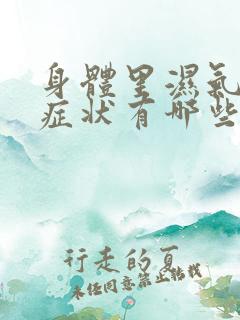 身體里濕氣
症状有哪些
行走的夏
未经同意禁止转载